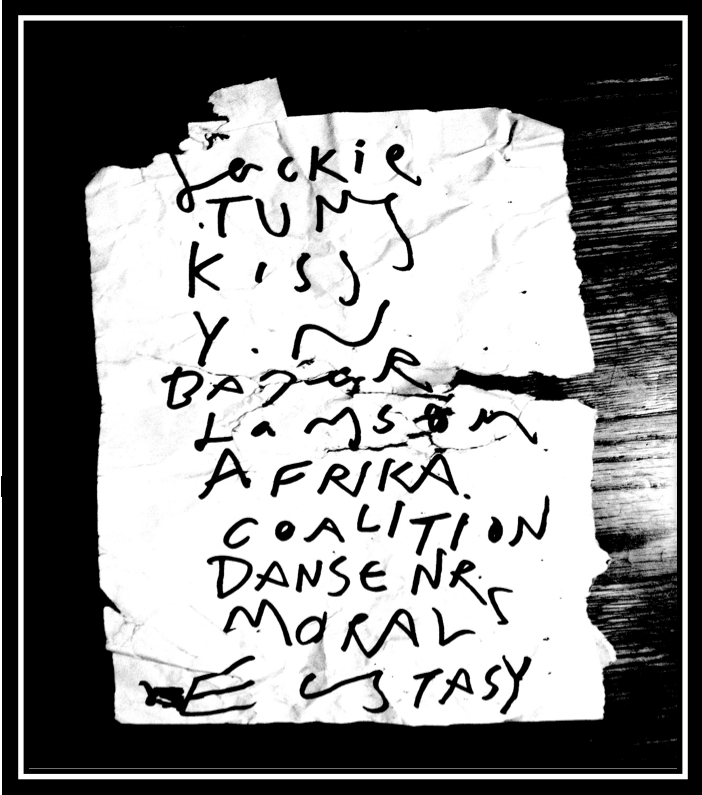 Jackie
TUNS
KISS
Y. N
BAZAR
Lamsön
AFRIKA.
COALITION
DANSE NR. 5
MORAL
ECSTASY